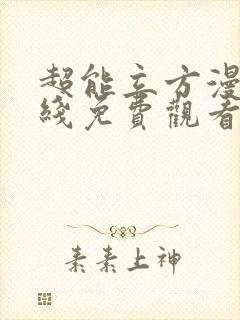 超能立方漫
綫免費觀看
素素上神